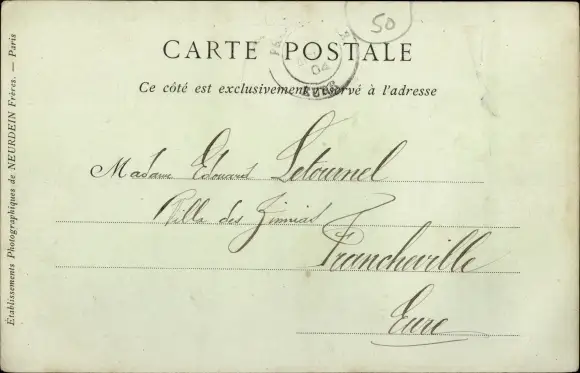 50
CARTE POSTALE
04
EURE
Ce côté est exclusivement réservé à l'adresse
Madame Edouard Letournel
Villa des Zinnias
Francheville
Eure
Établissements Photographiques de NEURDEIN Frères. — Paris